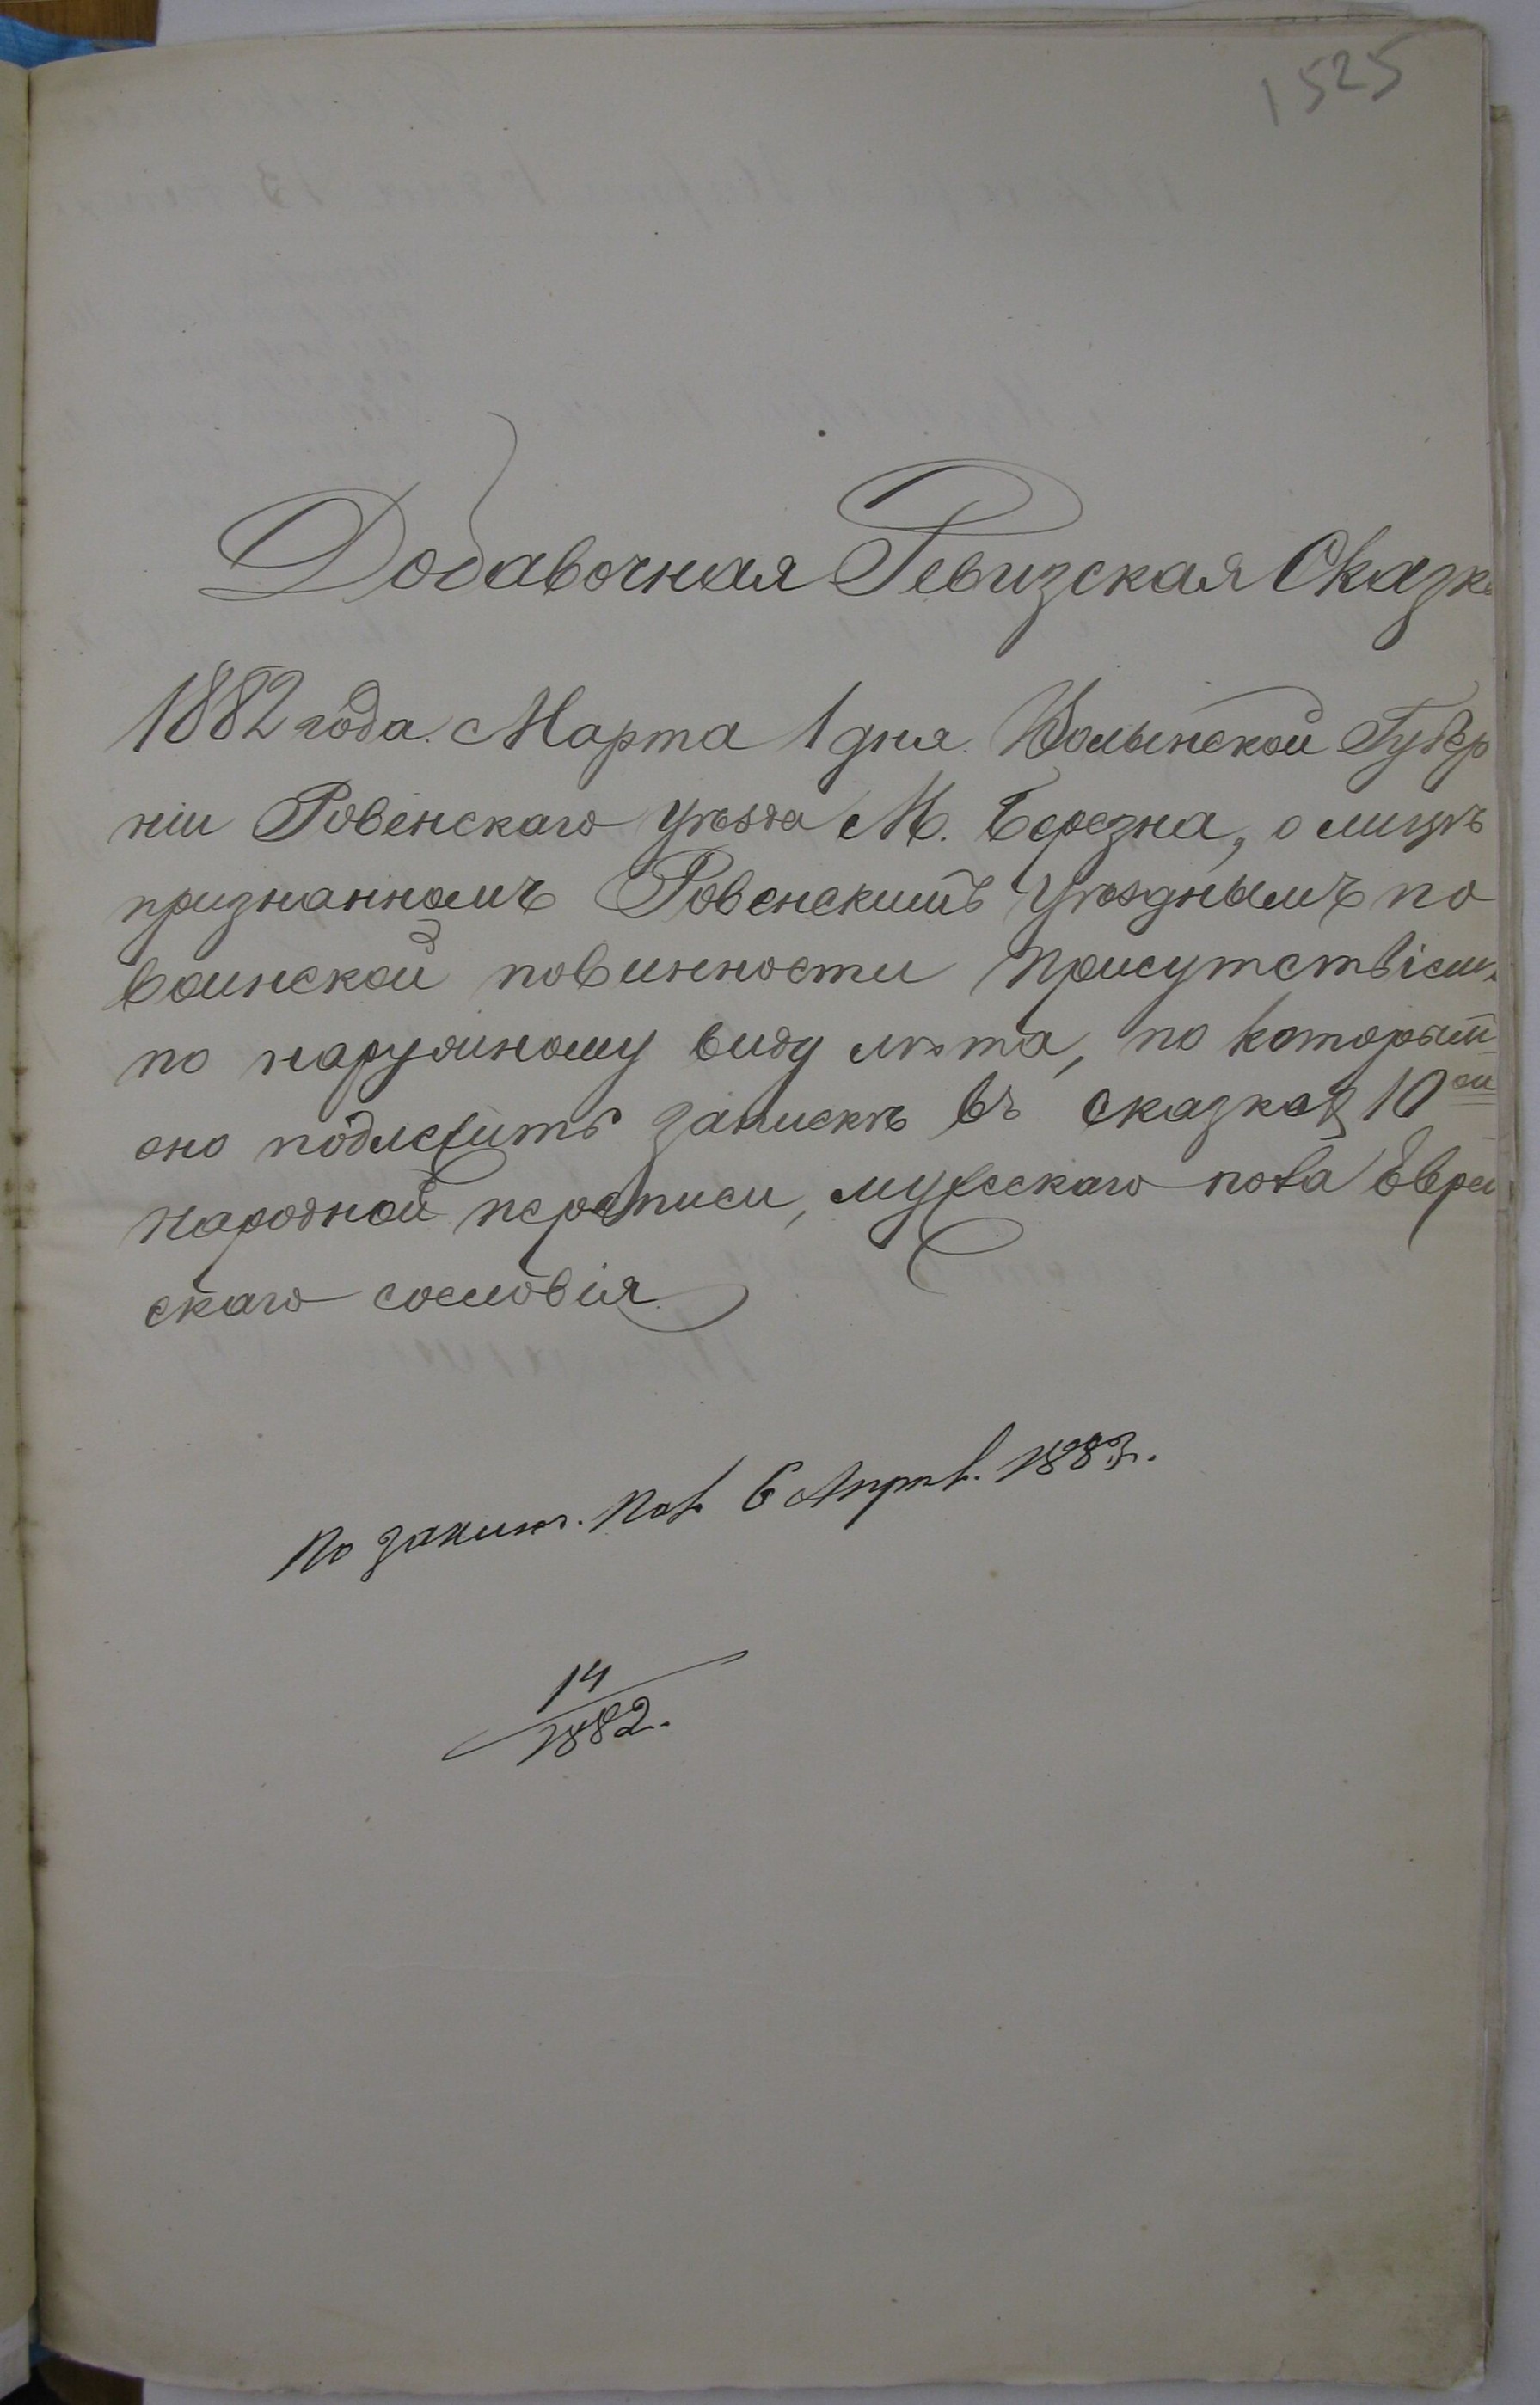 1525
Додавочная Ревизская Сказка
1882 года Марта 1 дня. Волынской Губер
ніи Ровенскаго Уѣзда М. Березна, о лицѣ
признанномъ Ровенскимъ Уѣзднымъ по
воинской повинности Присутствіемъ
по наружному виду лѣта, по которым
оно подлежитъ запискѣ въ сказкаъ 10ой
народной переписи, мужескаго пола Еврей
скаго сословія
По Пал. 6 Апрѣл. 1883.
14
1882.